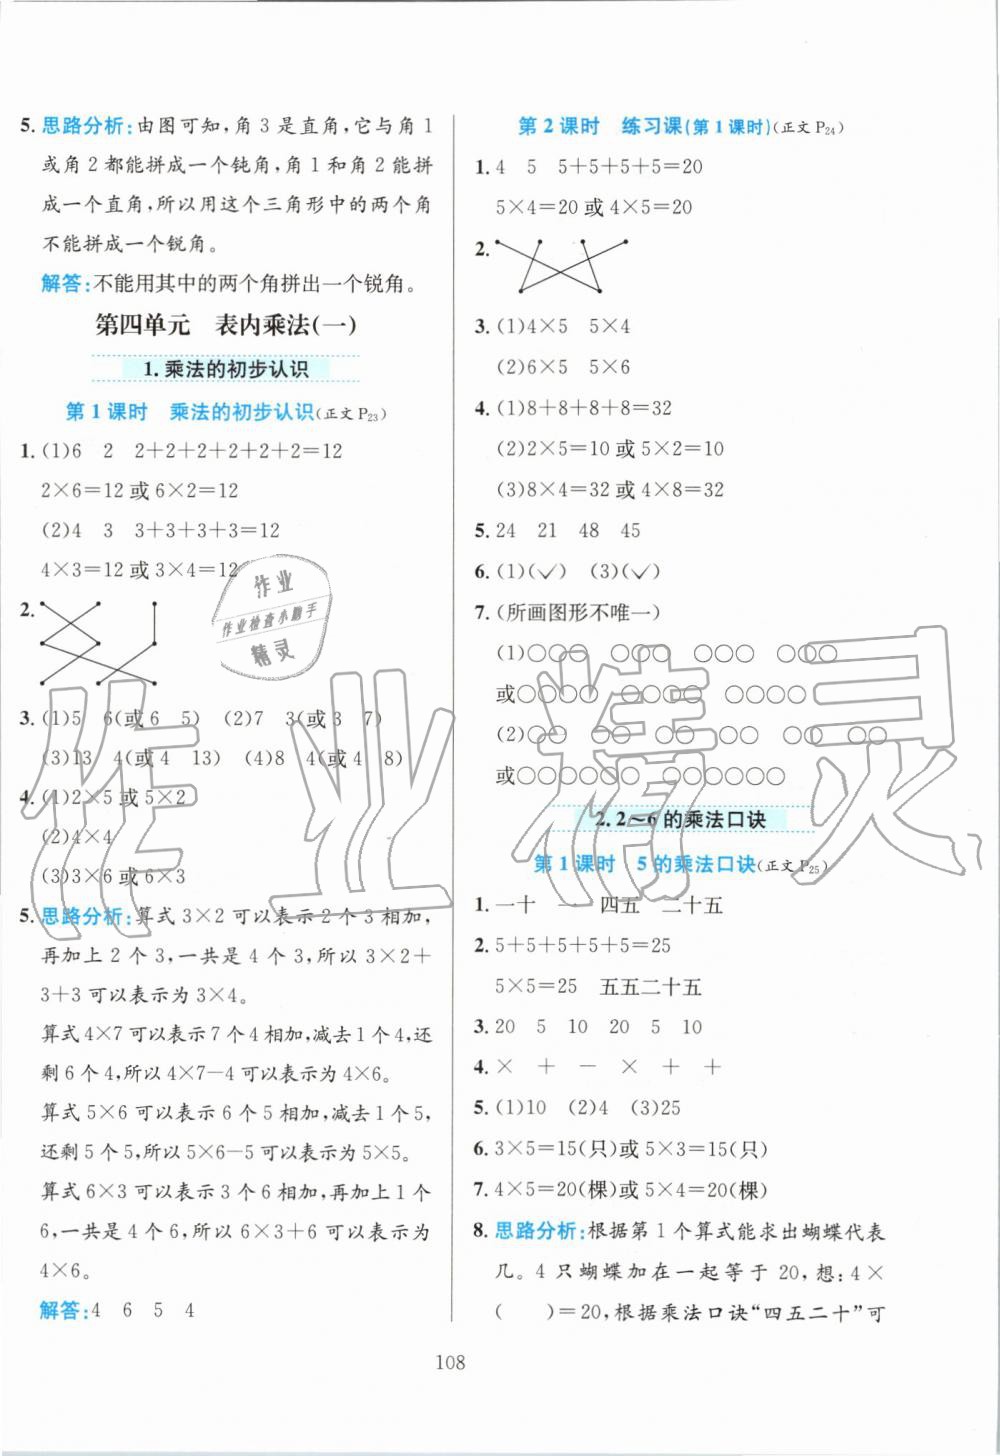 5. 思路分析:由图可知,角 3 是直角,它与角 1
或角 2 都能拼成一个钝角,角 1 和角 2 能拼
成一个直角,所以用这个三角形中的两个角
不能拼成一个锐角。
解答:不能用其中的两个角拼出一个锐角。
第四单元 表内乘法(一)
1.乘法的初步认识
第 1 课时 乘法的初步认识(正文 P23)
1. (1)6 2 2+2+2+2+2+2=12
2×6=12 或 6×2=12
(2)4 3 3+3+3+3=12
4×3=12 或 3×4=12
2.
3. (1)5 6(或 6 5) (2)7 3(或 3 7)
(3)13 4(或 4 13) (4)8 4(或 4 8)
4. (1)2×5 或 5×2
(2)4×4
(3)3×6 或 6×3
5. 思路分析:算式 3×2 可以表示 2 个 3 相加,
再加上 2 个 3,一共是 4 个 3,所以 3×2+
3+3 可以表示为 3×4。
算式 4×7 可以表示 7 个 4 相加,减去 1 个 4,还
剩 6 个 4,所以 4×7-4 可以表示为 4×6。
算式 5×6 可以表示 6 个 5 相加,减去 1 个 5,
还剩 5 个 5,所以 5×6-5 可以表示为 5×5。
算式 6×3 可以表示 3 个 6 相加,再加上 1 个
6,一共是 4 个 6,所以 6×3+6 可以表示为
4×6。
解答:4 6 5 4
第 2 课时 练习课(第 1 课时)(正文 P24)
1. 4 5 5+5+5+5=20
5×4=20 或 4×5=20
2.
3. (1)4×5 5×4
(2)6×5 5×6
4. (1)8+8+8+8=32
(2)2×5=10 或 5×2=10
(3)8×4=32 或 4×8=32
5. 24 21 48 45
6. (1)(✓) (3)(✓)
7. (所画图形不唯一)
(1)○○○ ○○○ ○○○ ○○○
或○○○○ ○○○○ ○○○○
(2)○○ ○○ ○○ ○○ ○○ ○○
或○○○○○○ ○○○○○○
2. 2～6 的乘法口诀
第 1 课时 5 的乘法口诀(正文 P25)
1. 一十 一 四五 二十五
2. 5+5+5+5+5=25
5×5=25 五五二十五
3. 20 5 10 20 5 10
4. × + - × + +
5. (1)10 (2)4 (3)25
6. 3×5=15(只)或 5×3=15(只)
7. 4×5=20(棵)或 5×4=20(棵)
8. 思路分析:根据第 1 个算式能求出蝴蝶代表
几。4 只蝴蝶加在一起等于 20,想:4×
( )=20,根据乘法口诀“四五二十”可
108
作业
作业检查小助手
精灵
作业精灵